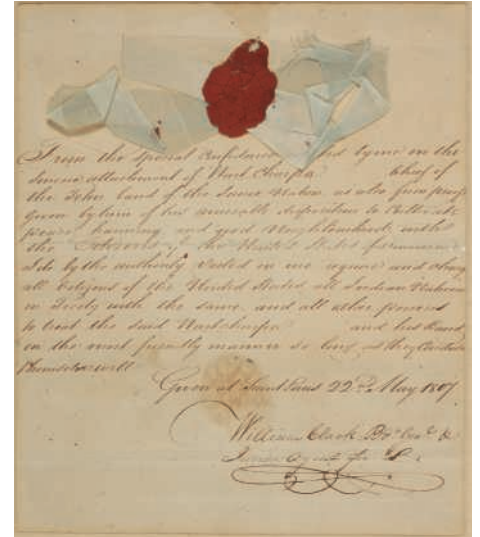 From the special Confidence reposed by me in the
sincere attachment of Wash Charpa Chief of
the Teton band of the Sioux Nation as also from proof
given by him of his amicable disposition to Cultivate
peace, harmony and good Neighbourhood with
the Citizens of the United States
I do by the authority vested in me require and charge
all Citizens of the United States all Indian Nations
in Treaty with the same, and all other powers
to treat the said Washcharpa and his Band
in the most friendly manner so long as they Conduct
themselves well
Given at Saint Louis 22nd May 1807
William Clark
Indian Agent for